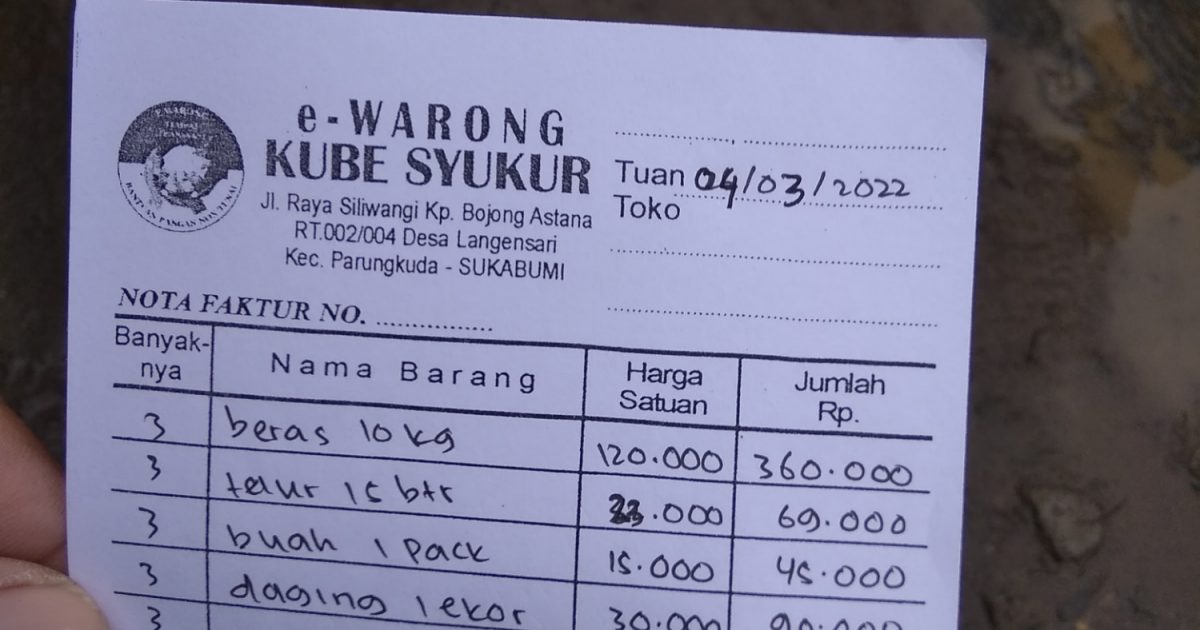 e-WARONG
KUBE SYUKUR
Jl. Raya Siliwangi Kp. Bojong Astana
RT.002/004 Desa Langensari
Kec. Parungkuda - SUKABUMI
Tuan 04/03/2022
Toko
BANTUAN PANGAN NON TUNAI
NOTA FAKTUR NO. ...............
Banyak-nya Nama Barang Harga Satuan Jumlah Rp.
3 beras 10 kg 120.000 360.000
3 telur 15 btr 23.000 69.000
3 buah 1 pack 15.000 45.000
3 daging 1 ekor 30.000 90.000
3